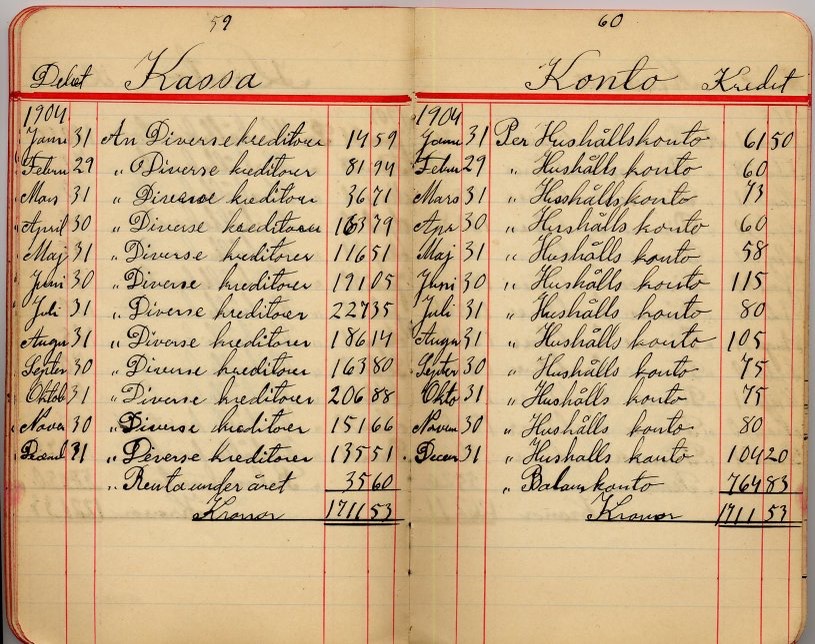 59
Debet Kassa
1904
Janu 31 An Diverse kreditorer 14 59
Febru 29 „ Diverse kreditorer 81 94
Mars 31 „ Diverse kreditorer 36 71
April 30 „ Diverse kreditorer 163 79
Maj 31 „ Diverse kreditorer 116 51
Juni 30 „ Diverse kreditorer 191 05
Juli 31 „ Diverse kreditorer 227 35
Augu 31 „ Diverse kreditorer 186 14
Septer 30 „ Diverse kreditorer 163 80
Oktob 31 „ Diverse kreditorer 206 88
Novem 30 „ Diverse kreditorer 151 66
Decem 31 „ Diverse kreditorer 135 51
„ Renta under året 35 60
Kronor 1711 53
60
Konto Kredit
1904
Janu 31 Per Hushållskonto 61 50
Febru 29 „ Hushålls konto 60
Mars 31 „ Hushållskonto 73
Apr 30 „ Hushålls konto 60
Maj 31 „ Hushålls konto 58
Juni 30 „ Hushålls konto 115
Juli 31 „ Hushålls konto 80
Augu 31 „ Hushålls konto 105
Septer 30 „ Hushålls konto 75
Okto 31 „ Hushålls konto 75
Novem 30 „ Hushålls konto 80
Decem 31 „ Hushålls konto 104 20
„ Balans konto 764 83
Kronor 1711 53